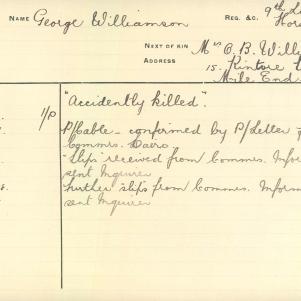 NAME George Williamson REG. &C. 9th Li
Hors
NEXT OF KIN Mrs O. B. Willi
ADDRESS 15. Rintore
Mile End
"Accidently killed".
1/P
P/Cable - confirmed by P/Letter
Commis. Cairo
"Slips" received from Commis. Inform
sent Inquirer
Further "slips" from Commis. Inform
sent Inquirer